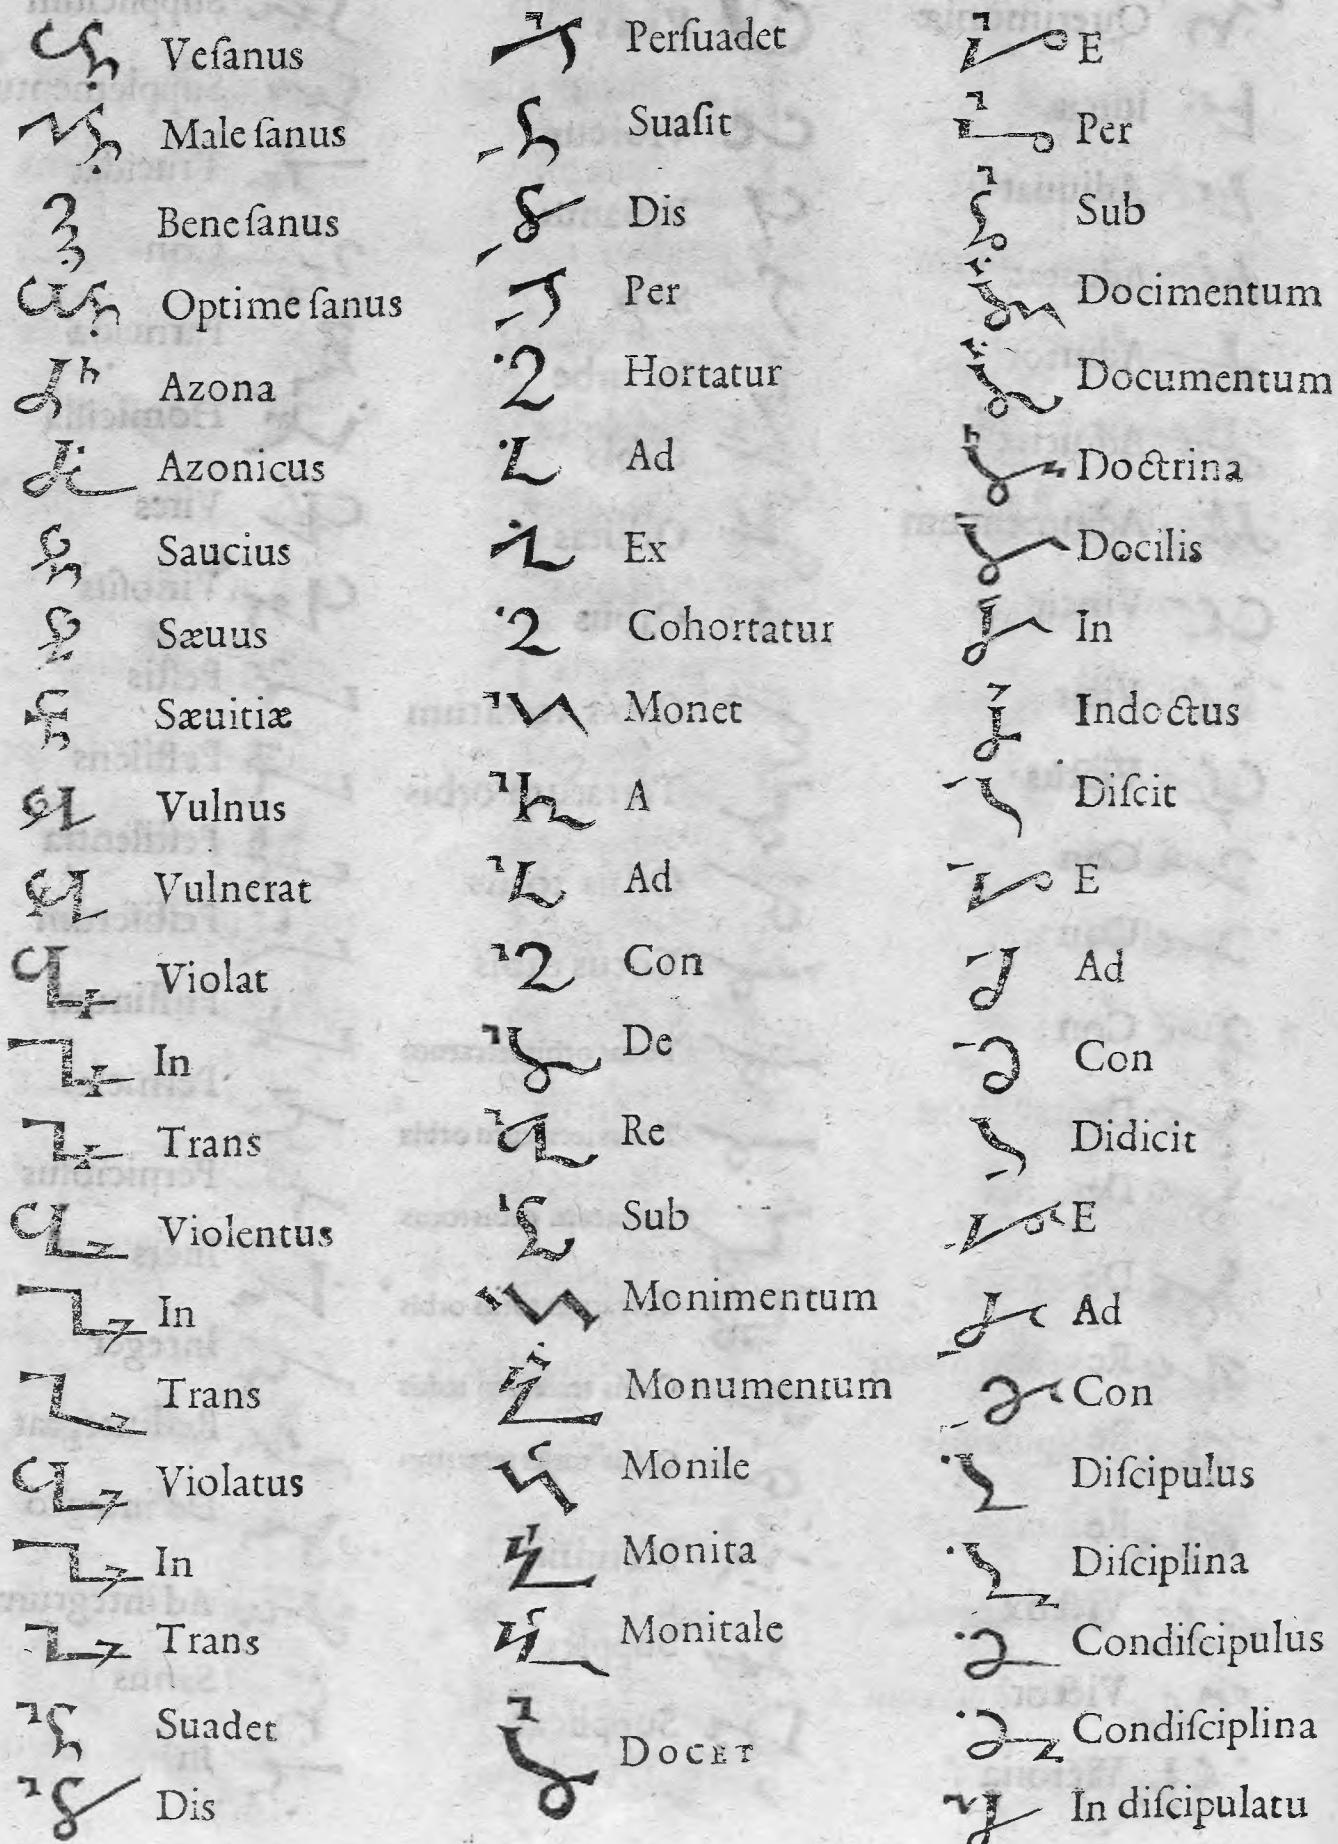 Veſanus
Male ſanus
Bene ſanus
Optime ſanus
Azona
Azonicus
Saucius
Sæuus
Sæuitiæ
Vulnus
Vulnerat
Violat
In
Trans
Violentus
In
Trans
Violatus
In
Trans
Suadet
Dis
Perſuadet
Suaſit
Dis
Per
Hortatur
Ad
Ex
Cohortatur
Monet
A
Ad
Con
De
Re
Sub
Monimentum
Monumentum
Monile
Monita
Monitale
DOCET
E
Per
Sub
Docimentum
Documentum
Doctrina
Docilis
In
Indoctus
Diſcit
E
Ad
Con
Didicit
E
Ad
Con
Diſcipulus
Diſciplina
Condiſcipulus
Condiſciplina
In diſcipulatu